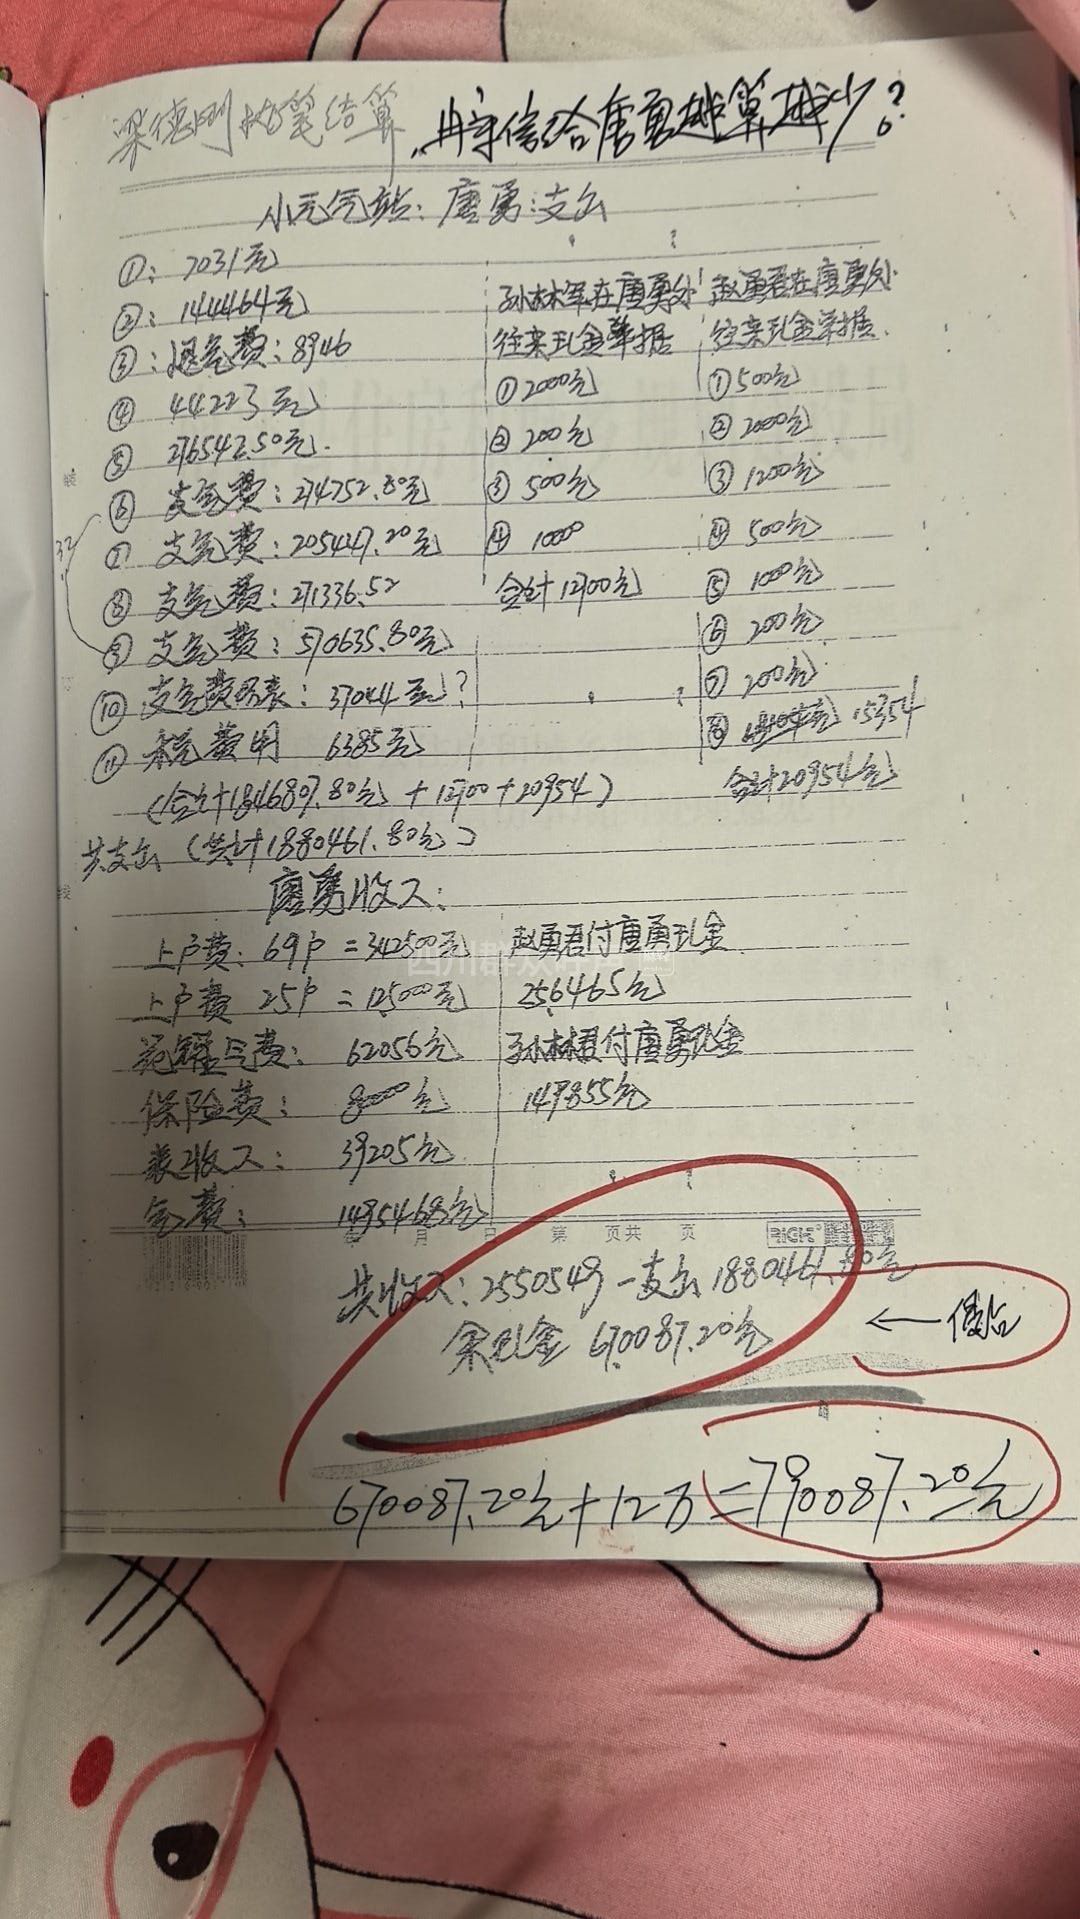 梁德刚执笔结算 冉宗信给唐勇越算越少?
小元气站：唐勇：支出
①：7031元
②：144464元
③：退气费：8946
④ 44223元
⑤ 276542.50元
⑥ 支气费：274752.80元
⑦ 支气费：205447.20元
⑧ 支气费：271336.52
⑨ 支气费：570635.80元
32
⑩ 支气费另表：37044元?
⑪ 杂费用 6385元
(合计1846807.80元 + 12700 + 20954)
共支出 (共计1880461.80元)
孙林军在唐勇处
往来现金单据
①2000元
②200元
③500元
④1000
合计12700元
赵勇君在唐勇处
往来现金单据
①500元
②2000元
③1200元
④500元
⑤1000元
⑥200元
⑦200元
⑧ 15354
合计20954元
唐勇收入：
上户费：69户=342500元
上户费 25户=125000元
气费： 62056元
保险费： 8000元
表收入： 39205元
气费： 1495468元
赵勇君付唐勇现金
256465元
孙林君付唐勇现金
149855元
月 日 第 页共 页
RICH
共收入：2550549-支出1880461.80元
余现金 670087.20元
←
670087.20元+12万=790087.20元
四川群众